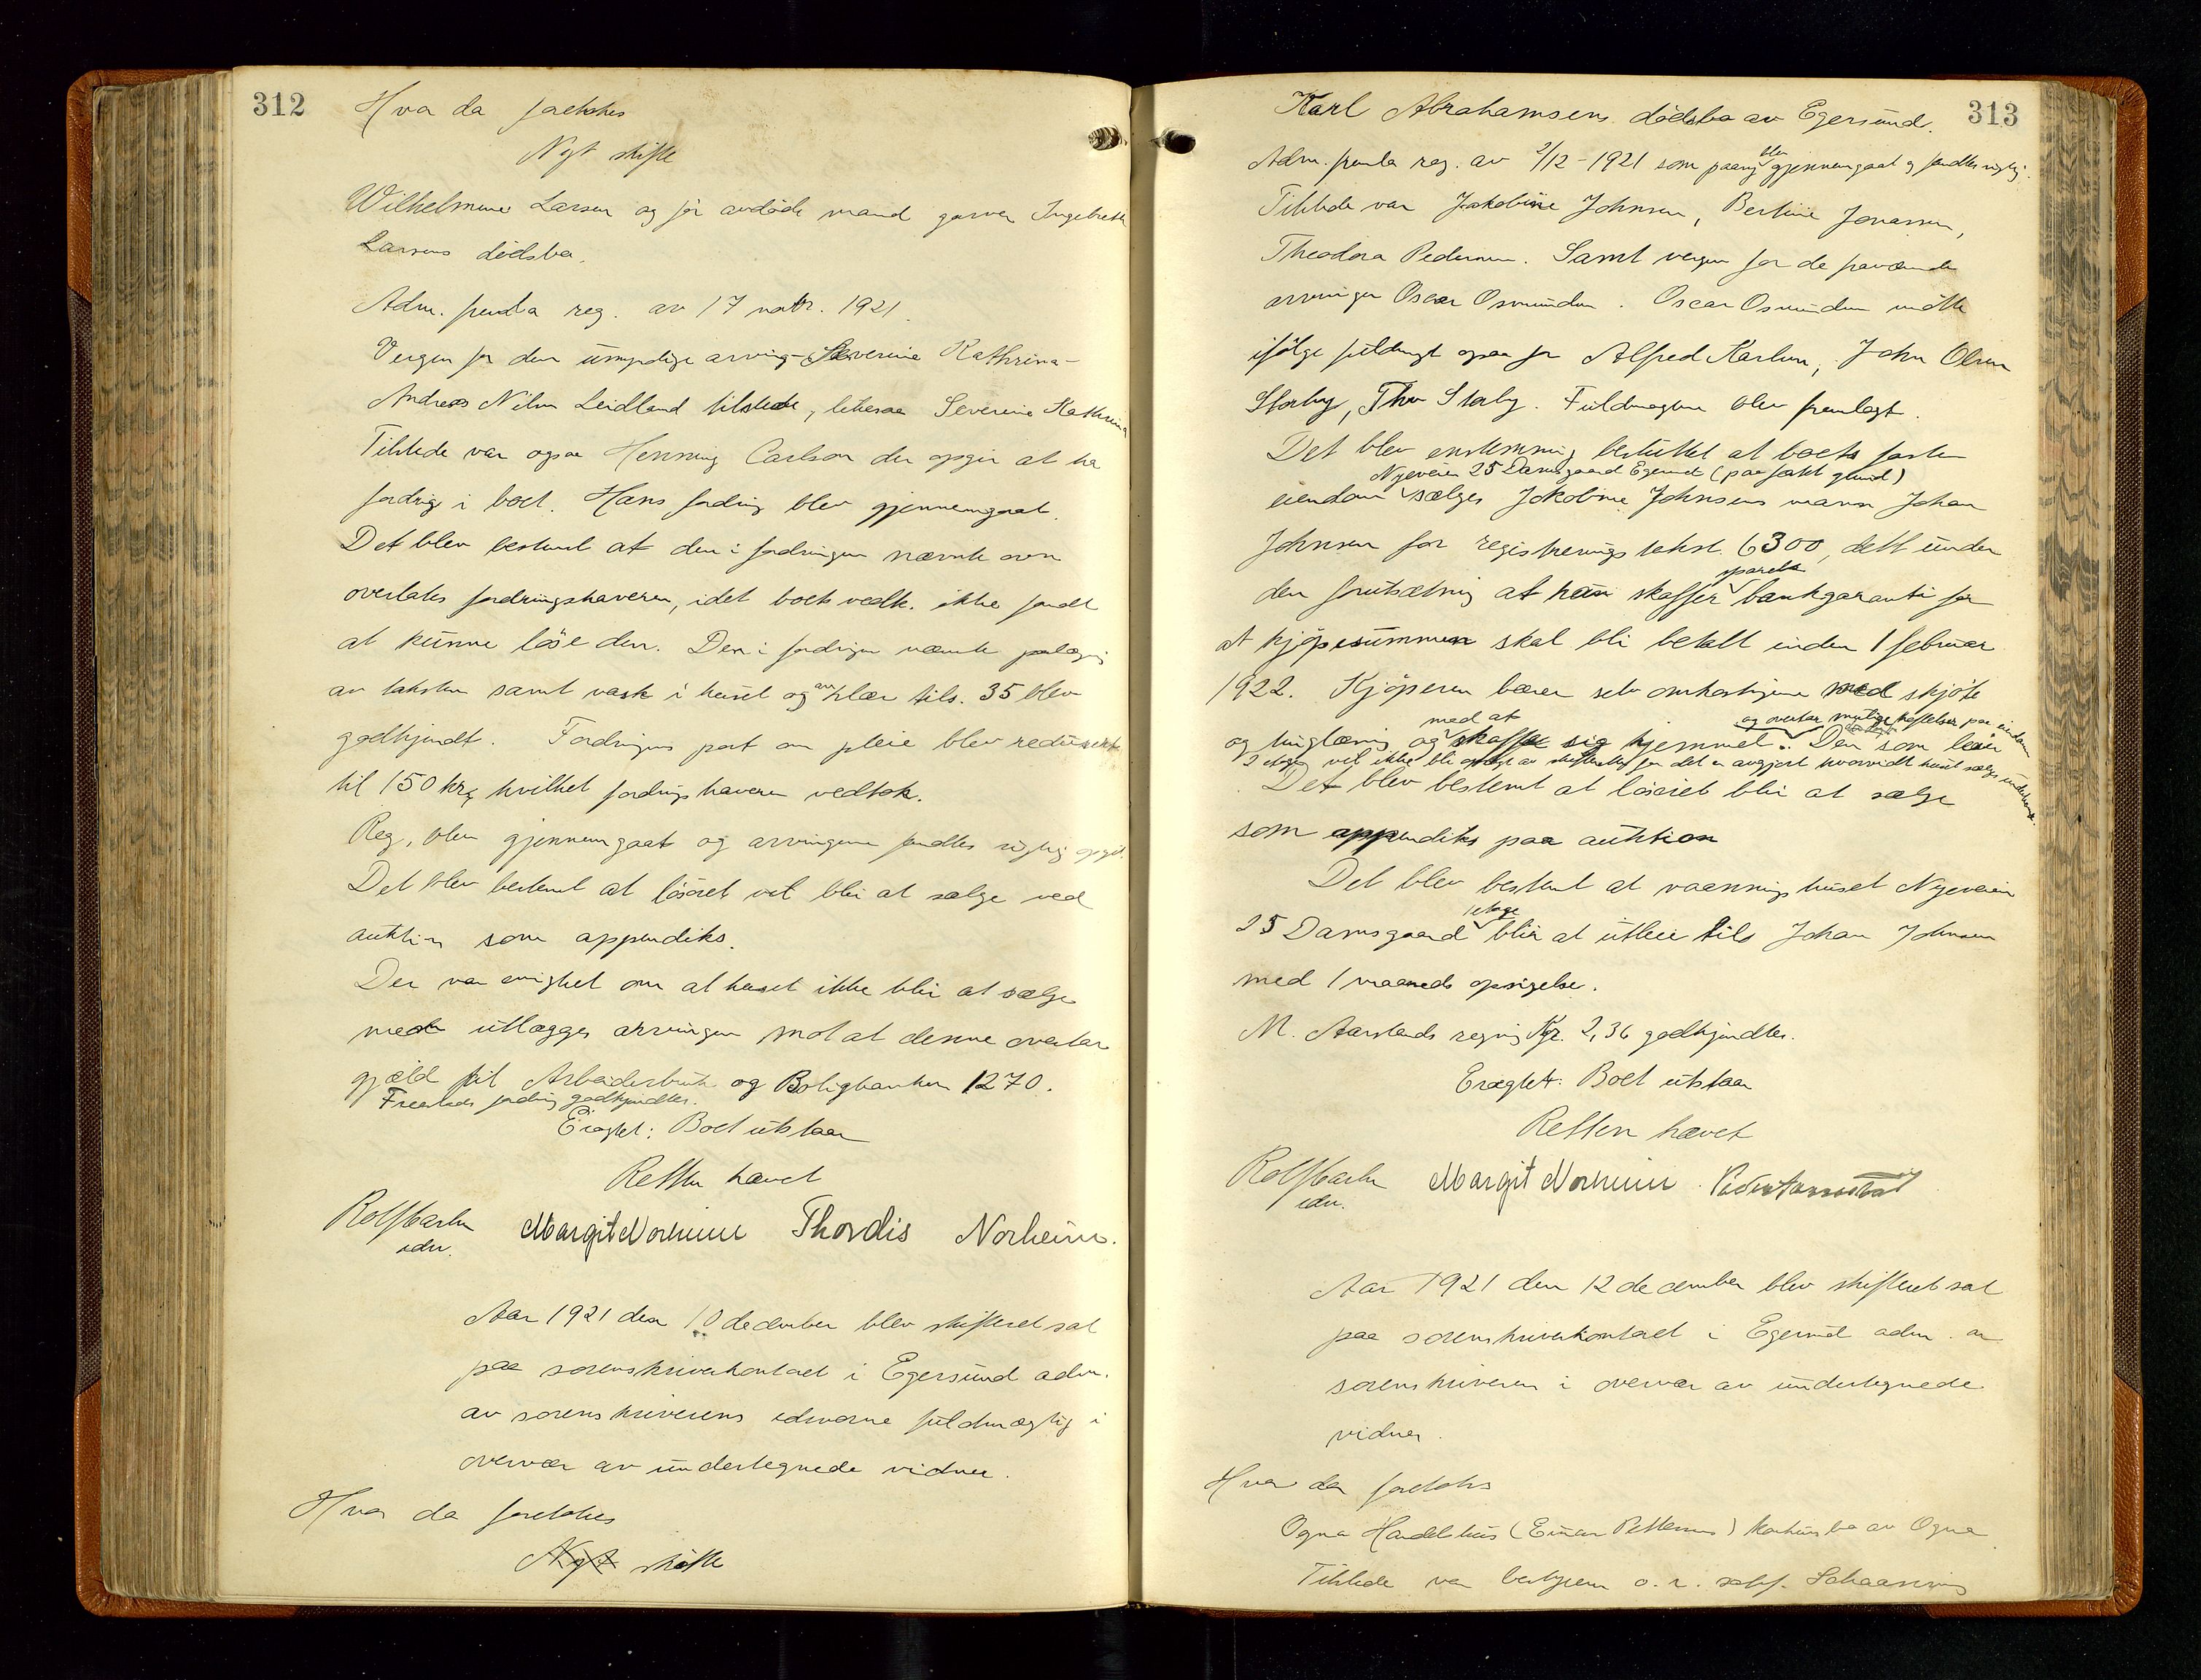 312
Hva da foretokes
Nyt skifte
Wilhelmine Larsen og før avdøde mand garver Ingebrett
Larsens dødsbo.
Adm. fremla reg. av 17 novbr. 1921.
Vergen for den umyndige arving Severine Kathrina
Andreas Nilsen Leidland tilstede, likesaa Severine Kathrina
Tilstede var ogsaa Henning Carlson der opgir at ha
fordring i boet. Hans fordring blev gjennemgaat.
Det blev bestemt at den i fordringen nævnte ovn
overlates fordringshaveren, idet boets vedk. ikke fandt
at kunne løse den. Den i fordringen nævnte
av taksten samt vask i huset og av klær tils. 35 blev
godkjendt. Fordringens post om pleie blev redusert
til 150 kr, hvilket fordringshaveren vedtok.
Reg. blev gjennemgaat og arvingerne fandtes rigtig opgit.
Det blev bestemt at løsøret vil bli at sælge ved
auktion som appendiks.
Der var enighet om at huset ikke blir at sælge
men utlægges arvingen mot at denne overtar
gjæld til Arbeiderbruk og Boligbanken 1270.
fordring godkjendtes.
Eragtet: Boet utstaar
Retten hævet
edsv. Margit Norheim Thordis Norheim.
Aar 1921 den 10 december blev skifteret sat
paa sorenskriverkontoret i Egersund adm.
av sorenskriverens edsvorne fuldmægtig i
overvær av undertegnede vidner.
Hva da foretokes
Nyt skifte
313
Karl Abrahamsens dødsbo av Egersund.
Adm. fremla reg. av 2/12-1921 som paany blev gjennemgaat og fandtes rigtig.
Tilstede var Jakobine Johnsen, Bertine Jonassen,
Theodora Pedersen. Samt vergen for de fraværende
arvinger Oscar Osmundsen. Oscar Osmundsen møtte
ifølge fuldmagt ogsaa for Alfred Karlsen, John Olsen
Storby, Thea Storby. Fuldmagtene blev fremlagt.
Det blev enstemmig besluttet at boets faste
Nyeveien 25 Damsgaard Egersund (paa fæstet grund)
eiendom sælges Jokobine Johnsens mann Johan
Johnsen for registreringstakst 6300, dett under
den forutsætning at han skaffer sparebankgaranti for
at kjøpesummen skal bli betalt inden 1 februar
1922. Kjøperen bærer selv omkostningene med skjøte
med at og overtar mulige heftelser paa eiendom
og tinglæsning og skaffe sig hjemmel. Den som leier
2 etage vil ikke bli av skifteretten før det er avgjort hvorvidt huset sælges
Det blev bestemt at løsøret blir at sælge
som appendiks paa auktion
Det blev bestemt at vaaningshuset Nyeveien
25 Damsgaard 1 etage blir at utleie til Johan Johnsen
med 1 maaneds opsigelse.
M. Aarstads regning Kr. 2,36 godkjendtes.
Eragtet: Boet utstaar
Retten hævet
edsv. Margit Norheim
Aar 1921 den 12 december blev skifteret sat
paa sorenskriverkontoret i Egersund adm. av
sorenskriveren i overvær av undertegnede
vidner.
Hva da foretokes
Ogna Handelshus (Einar Pettersens) konkursbo av Ogna
Tilstede var bestyreren o.r. sakf. Schaanning